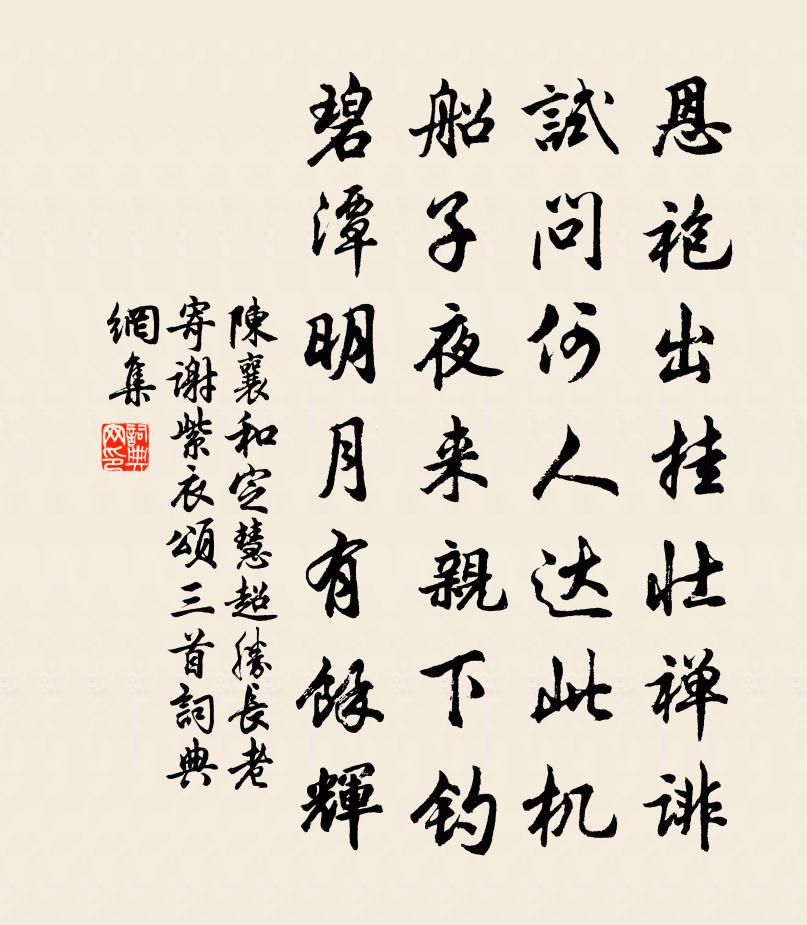 恩袍出挂壮禅诽
試问何人达此机
船子夜来親下钓
碧潭明月有餘輝
陳襄和定慧超勝長老
寄谢紫衣頌三首詞典
網集
詞典
网印